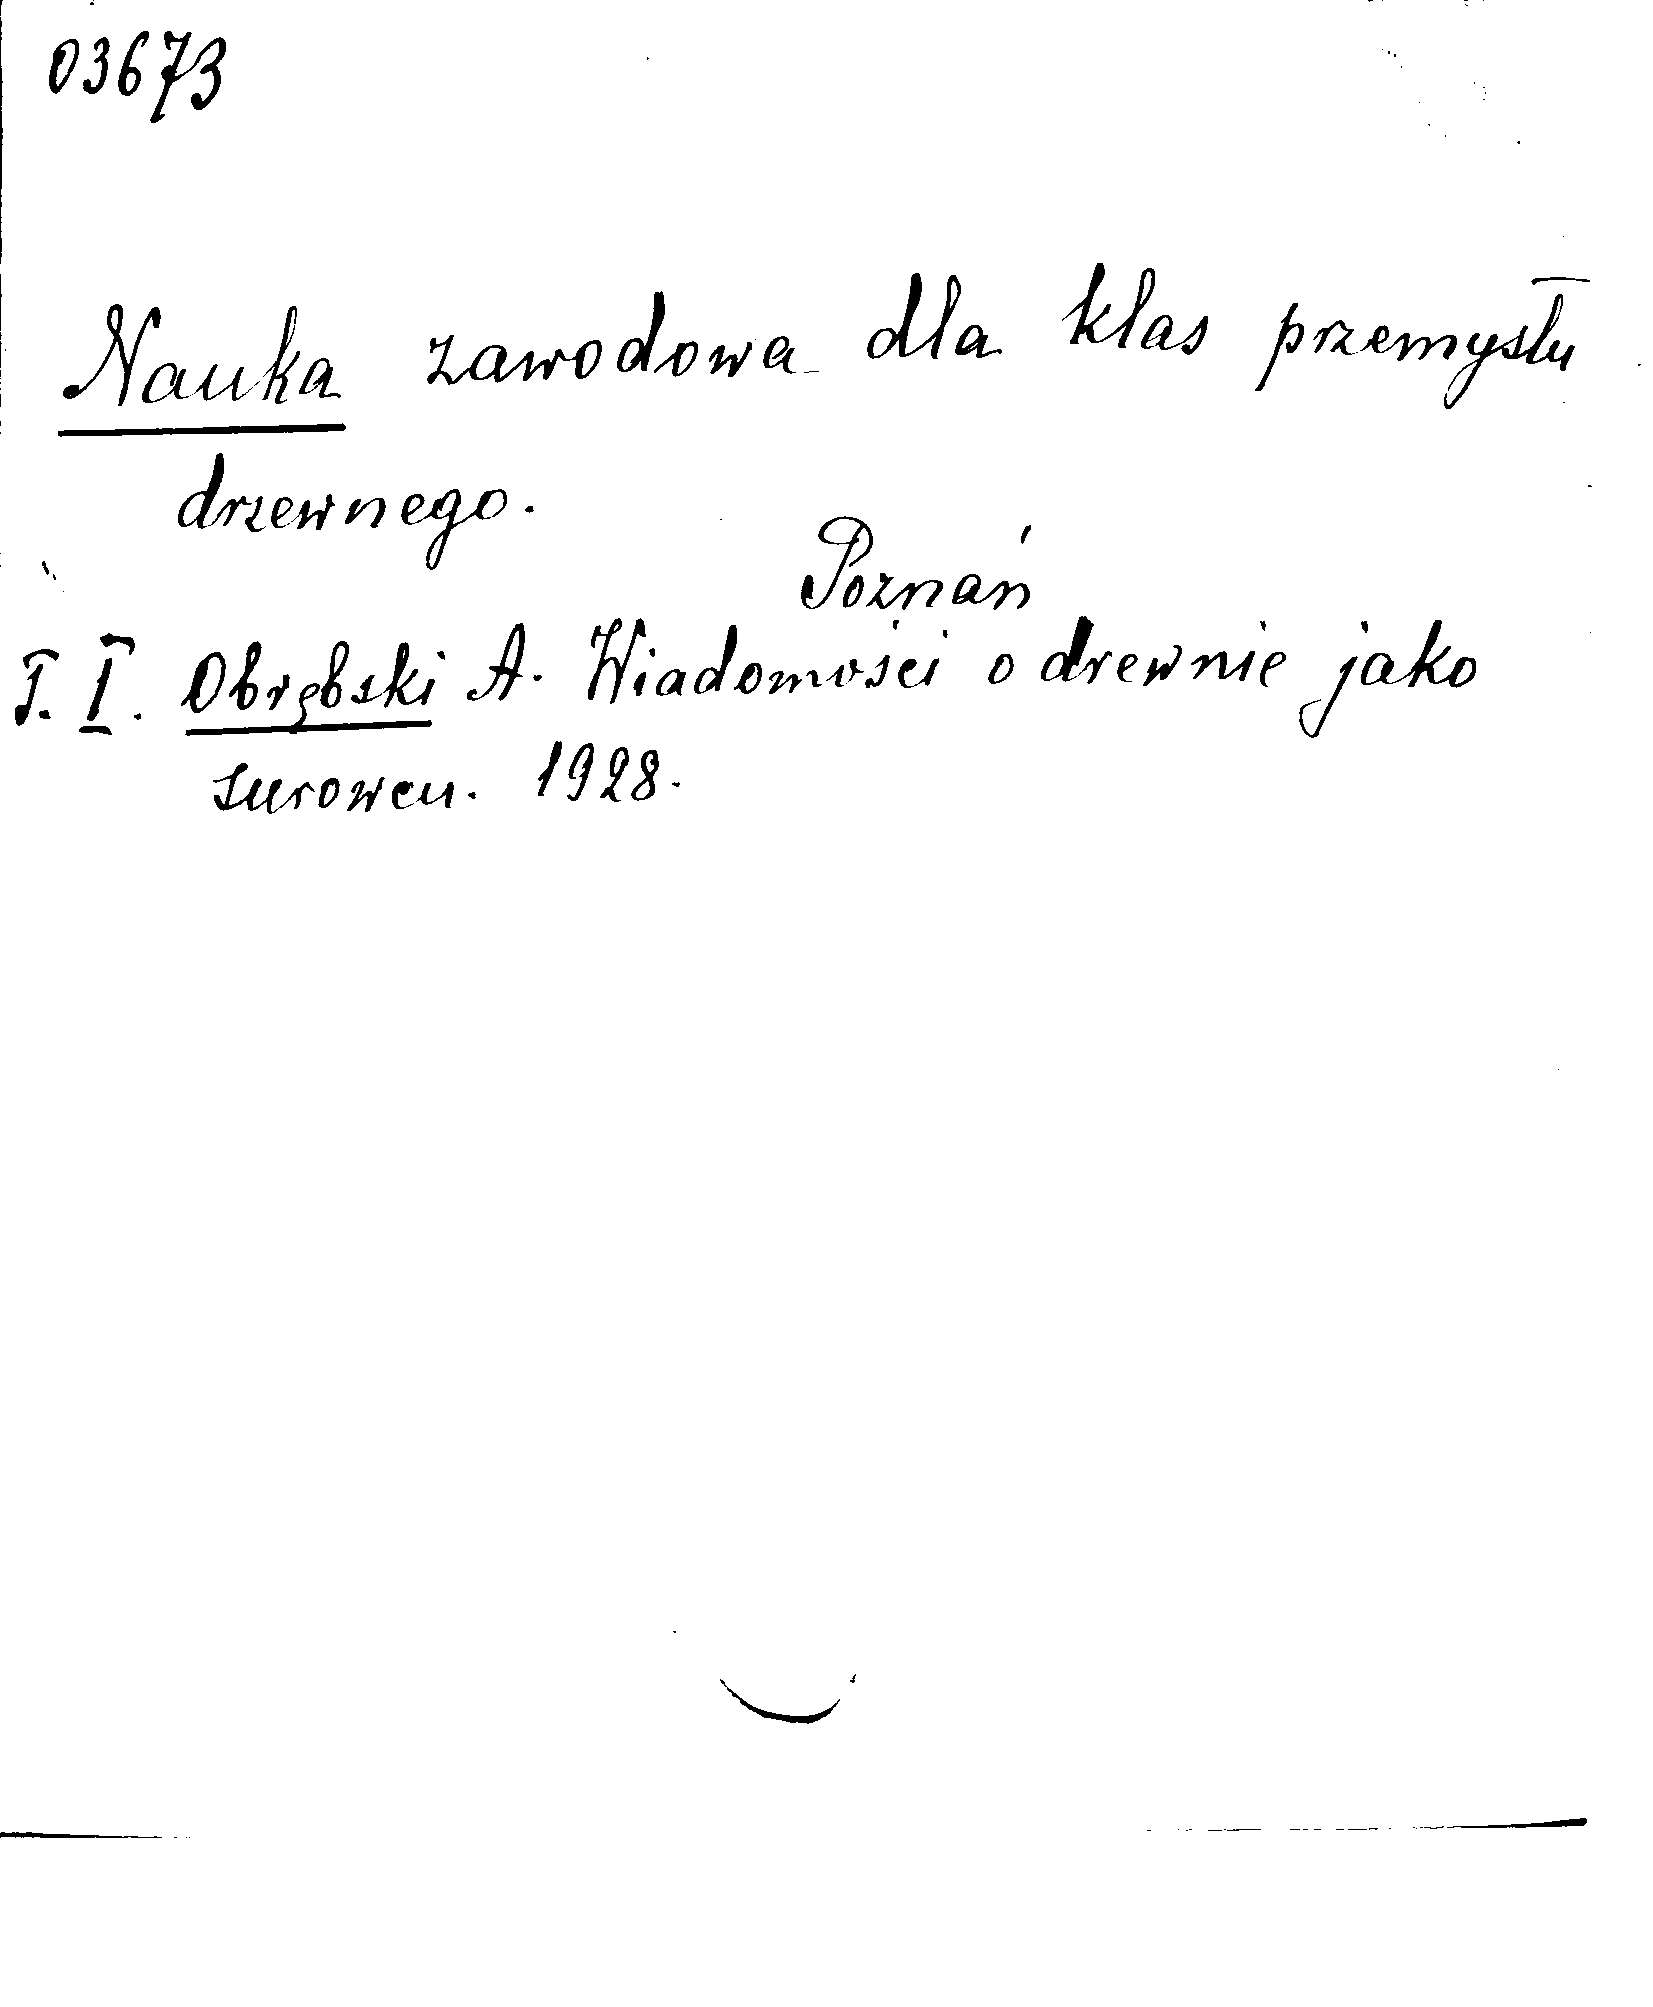 03673
Nauka zawodowa dla klas przemysłu
drzewnego.
Poznań
T. I. Obrębski A. Wiadomości o drewnie jako
surowcu. 1928.